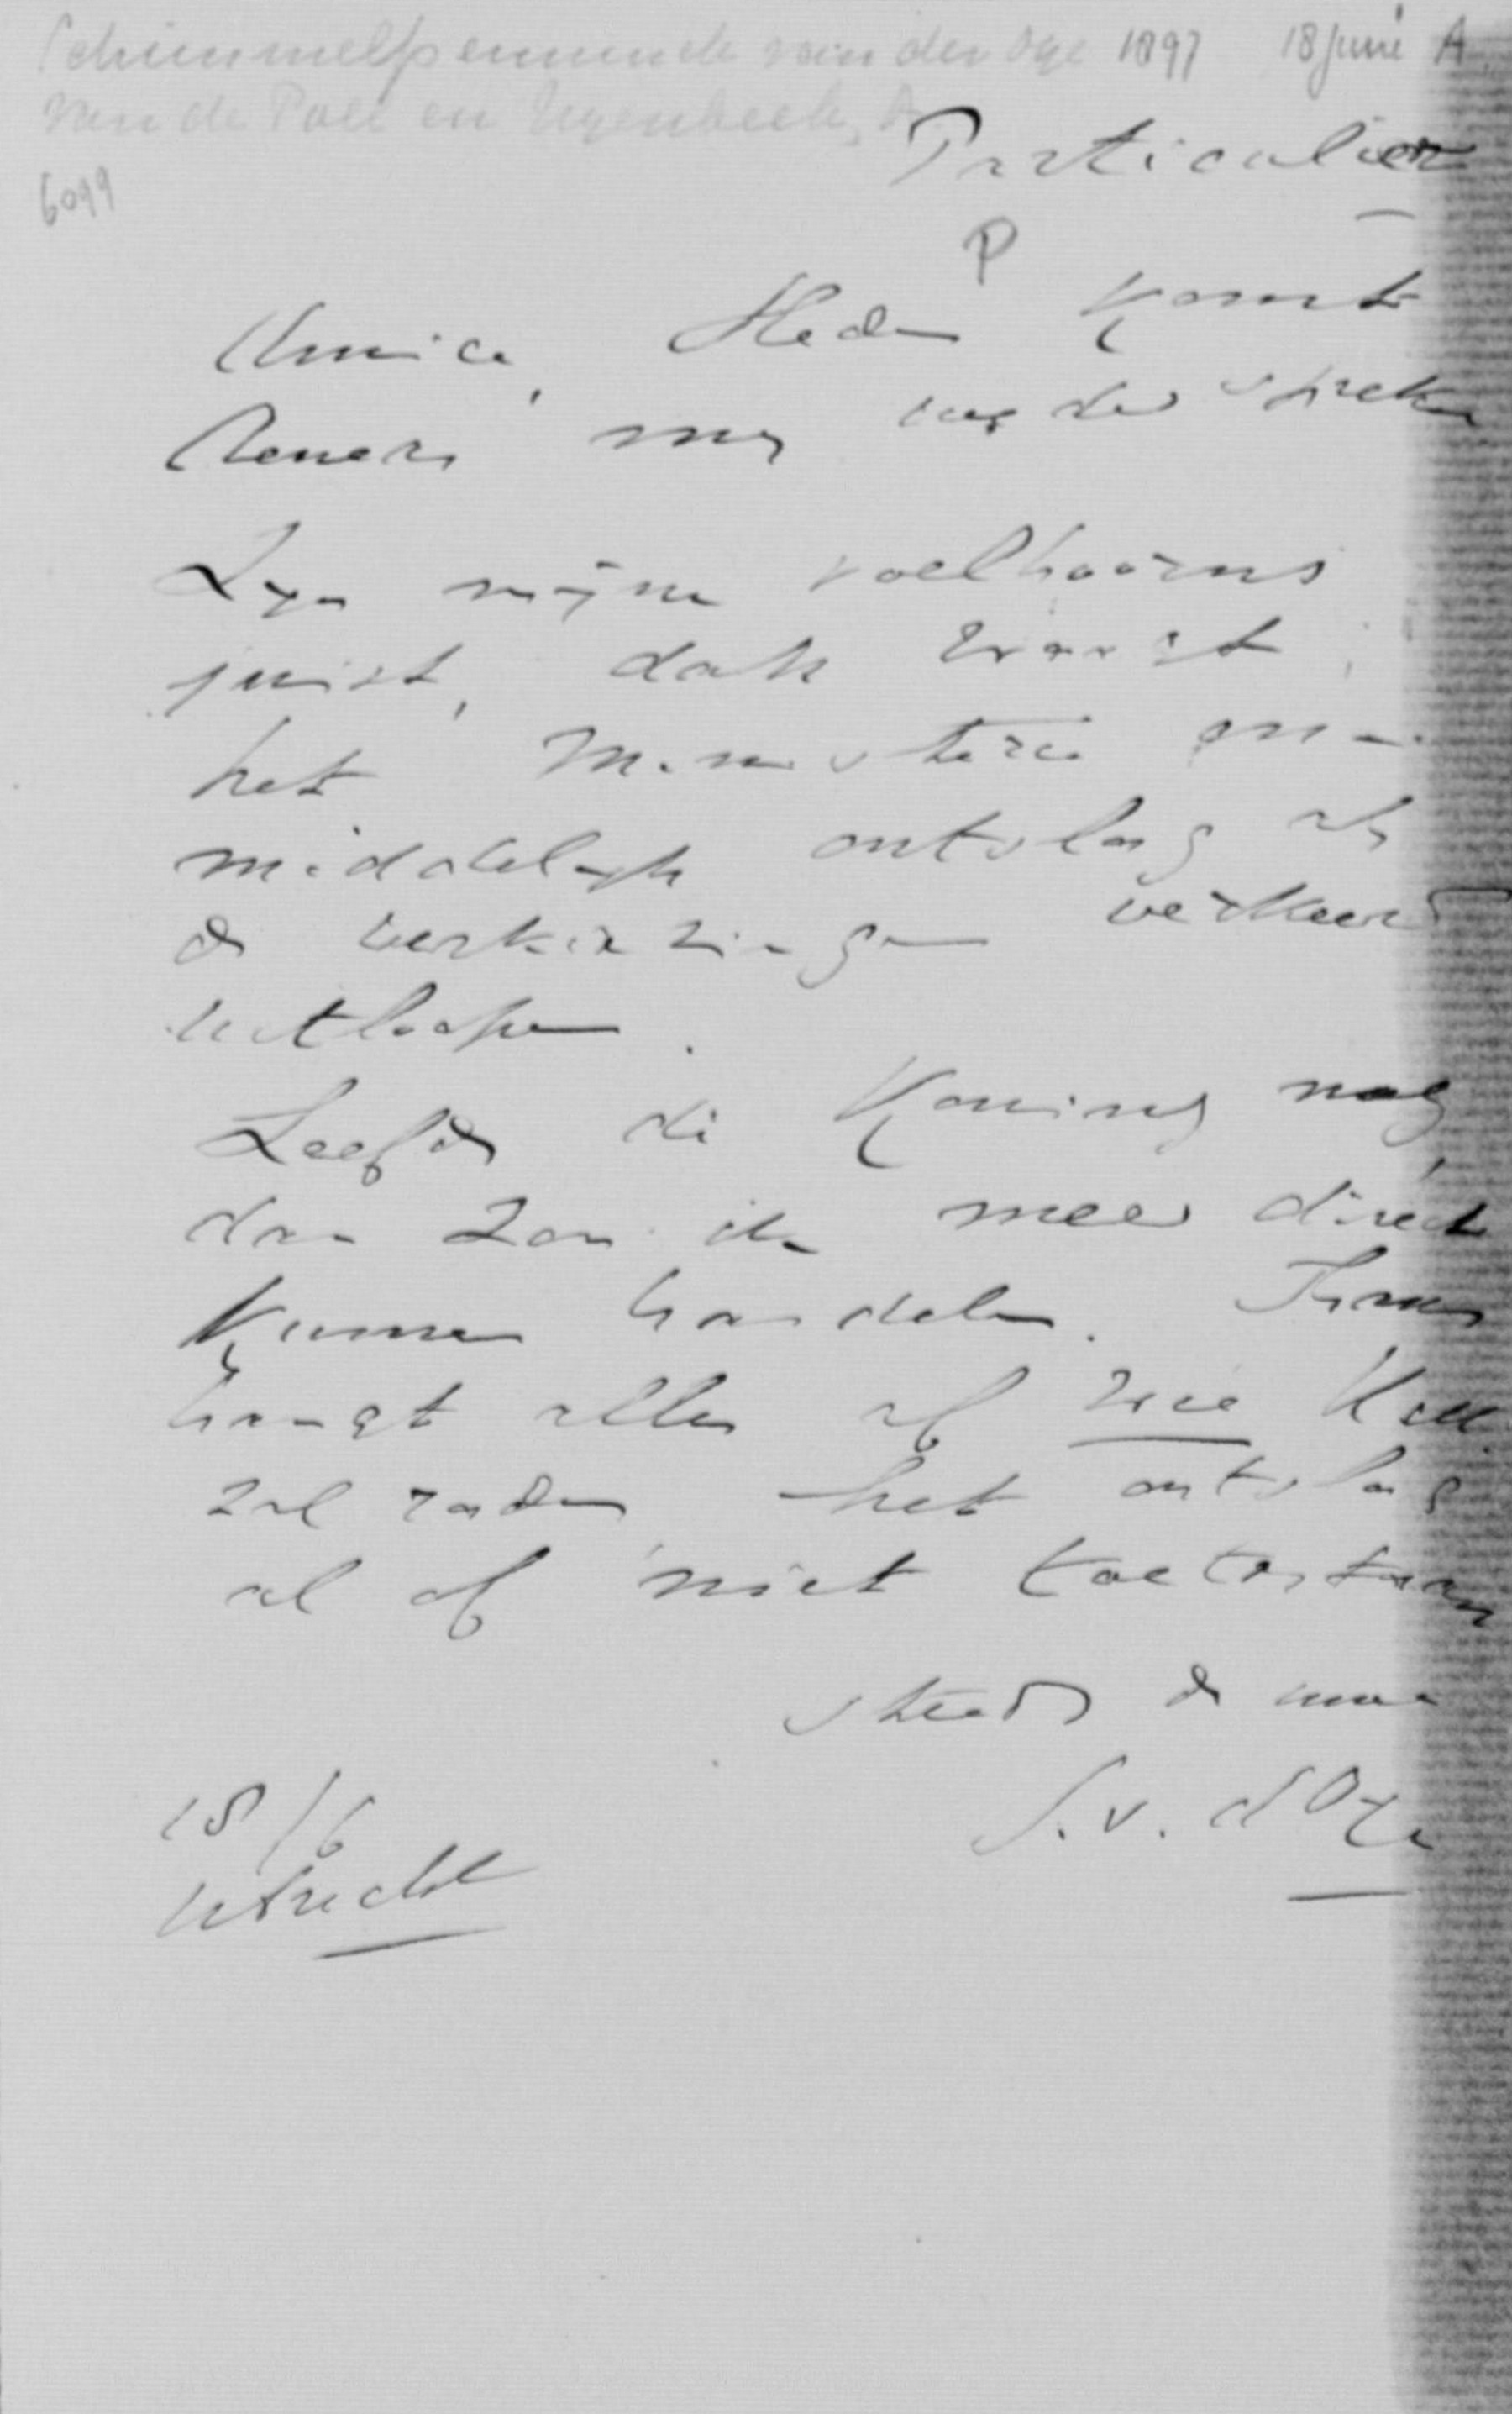 Schimmelpenninck van der Oye 1897 18 juni A
van de Poll en Nyenbeek, A
6099
Particulier
P
Amice, Heden komt
mij nader spreken
Zijn mijne voelhoorns
juist, dan vraagt
het Ministerie on-
middelijk ontslag als
de verkiezingen verkeerd
uitloopen.
Leefde de Koning nog,
dan zou ik meer direct
kunnen handelen. Thans
hangt alles af wie H.M.
zal raden het ontslag
al of niet toetestaan
steeds de uwe
S. v. d Oye
18/6
Utrecht